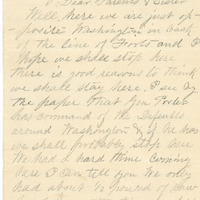 Dear Parents & Sister
Well, here we are just op-
posite Washington in back
of the line of Forts and I
hope we shall stop here
there is good reasons to think
we shall stay here, I see by
the paper that Gen Porter
has command of the Defenses
around Washington & if he has
we shall probably stop here
We had a hard time coming
here I can tell you We only
had about ½ pound of